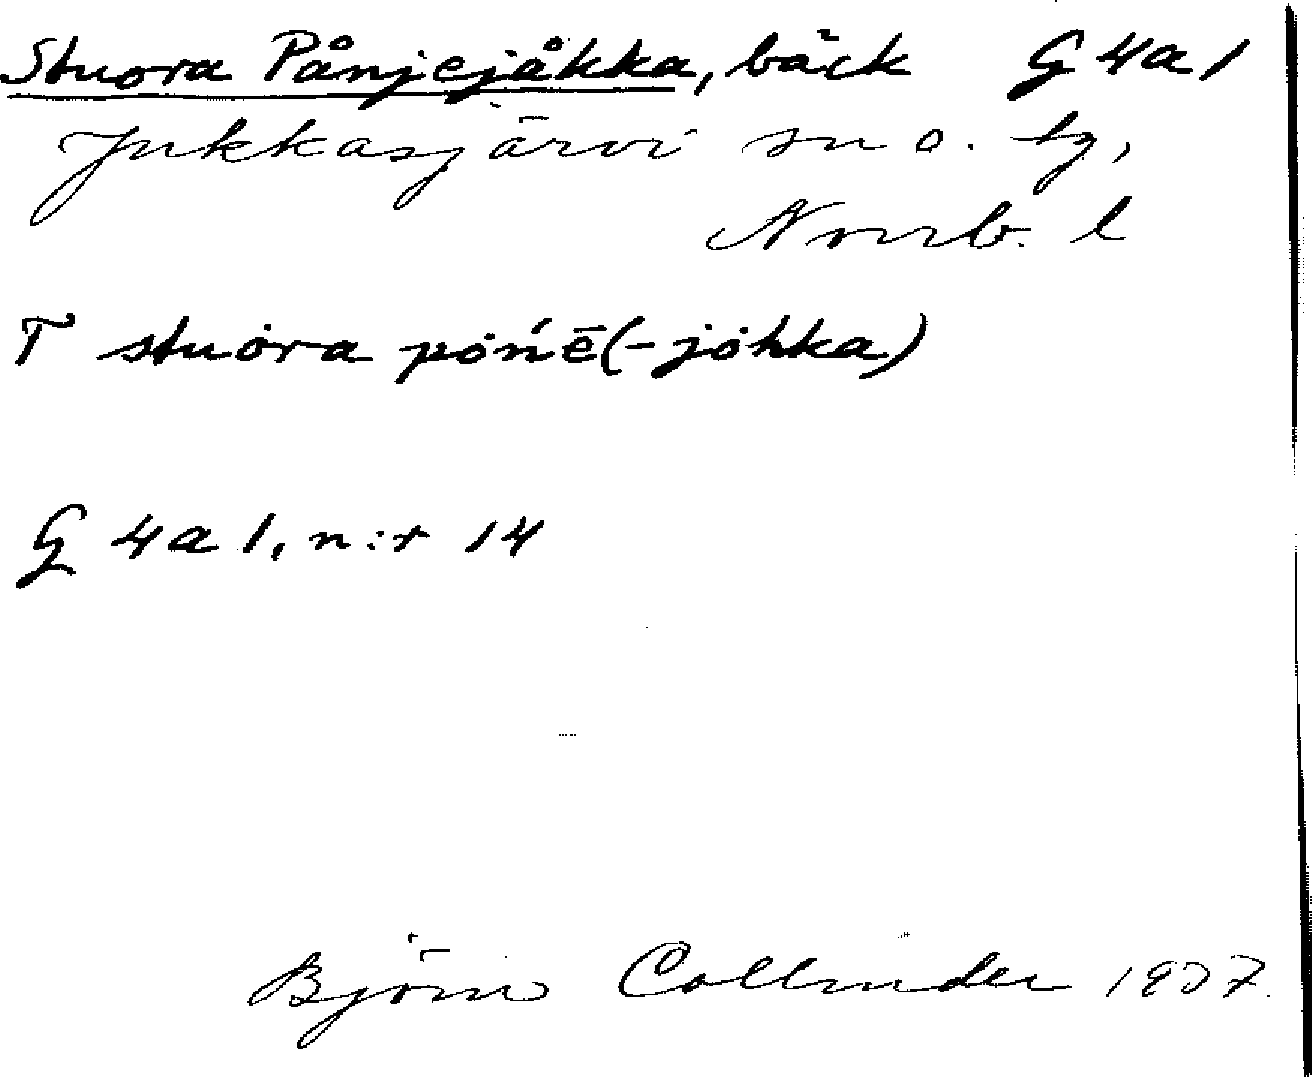 Stuora Pånjejåkka, bäck G 4a 1
Jukkasjärvi sn o. tg,
Norrb. l
T stuȯra pȯńē(-jȯhka)
G 4a 1, n:r 14
Björn Collinder